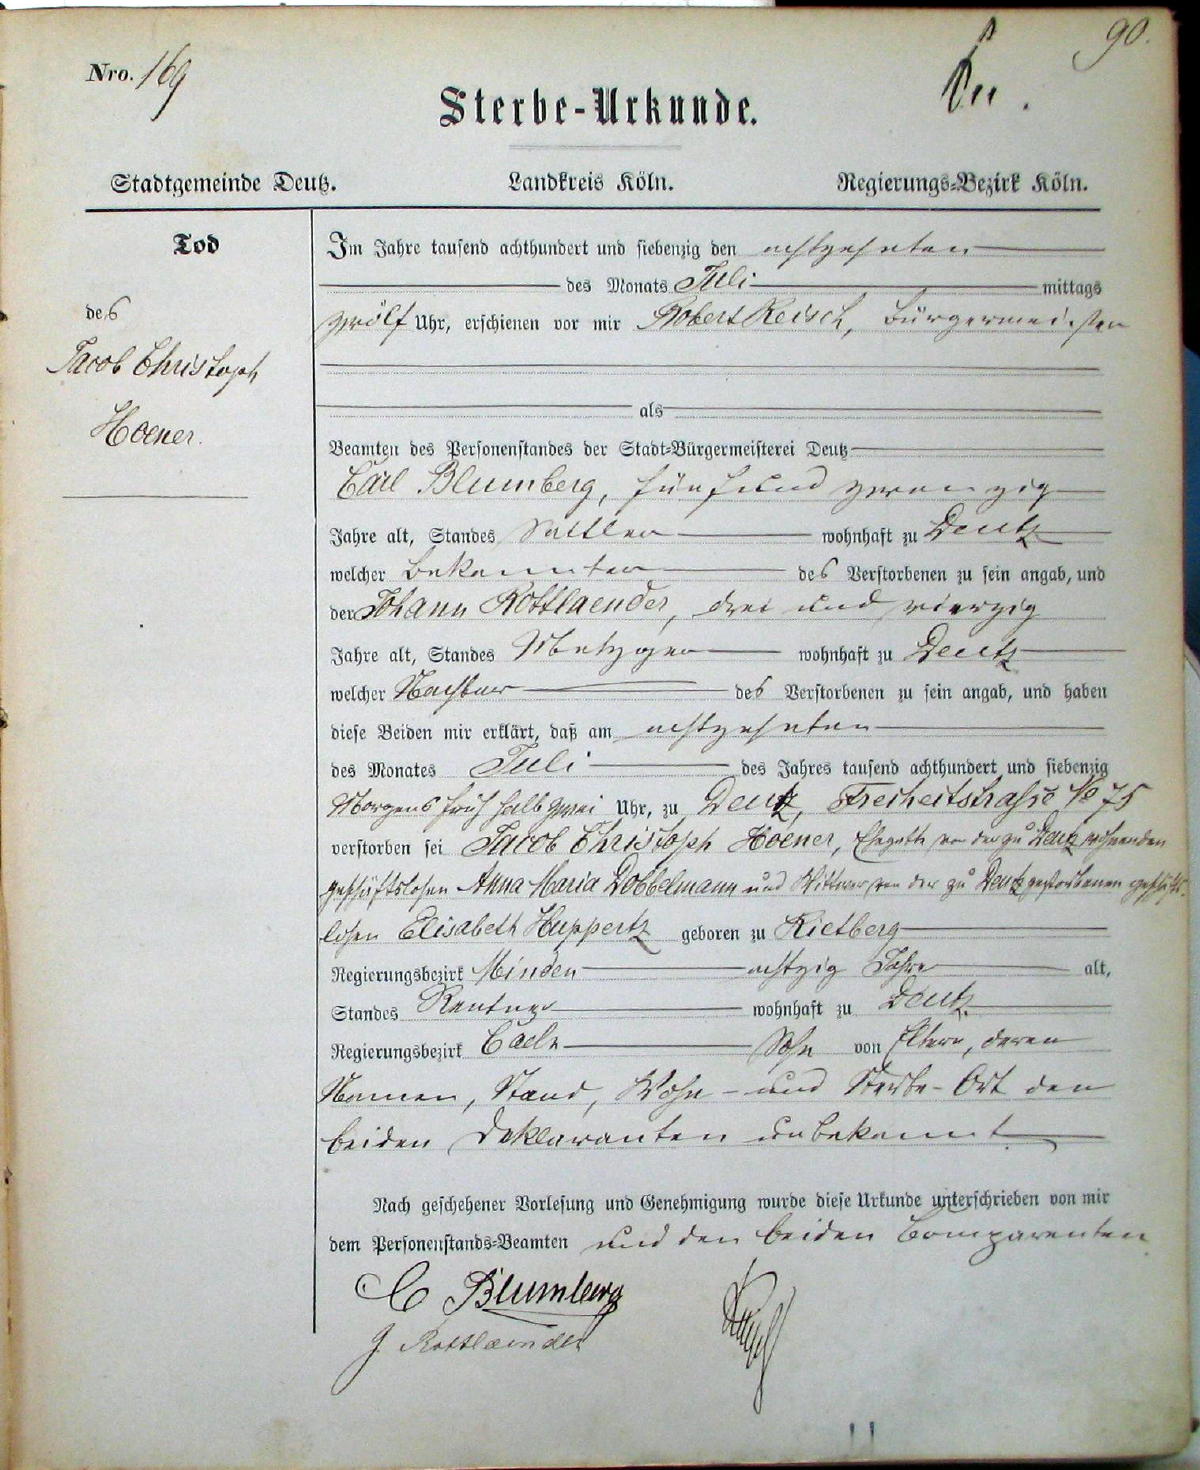 90.
Nro. 169
Sterbe-Urkunde.
Stadtgemeinde Deutz. Landkreis Köln. Regierungs-Bezirk Köln.
Tod
des
Jacob Christoph
Hoener.
Im Jahre tausend achthundert und siebenzig den achtzehnten
des Monats Juli mittags
zwölf Uhr, erschienen vor mir Robert Reisch, Bürgermeister
als
Beamten des Personenstandes der Stadt-Bürgermeisterei Deutz
Carl Blumberg, fünfundzwanzig
Jahre alt, Standes Sattler wohnhaft zu Deutz
welcher Bekannter des Verstorbenen zu sein angab, und
der Johann Rottlaender, drei und vierzig
Jahre alt, Standes Metzger wohnhaft zu Deutz
welcher Nachbar des Verstorbenen zu sein angab, und haben
diese Beiden mir erklärt, daß am achtzehnten
des Monates Juli des Jahres tausend achthundert und siebenzig
Morgens früh halb zwei Uhr, zu Deutz, Freiheitstraße No 75
verstorben sei Jacob Christoph Hoener, Ehegatte von der zu Deutz wohnenden
geschäftslosen Anna Maria Dobbelmann und Wittwer von der zu Deutz gestorbenen geschäfts-
losen Elisabeth Huppertz geboren zu Rietberg
Regierungsbezirk Minden achtzig Jahre alt,
Standes Rentner wohnhaft zu Deutz
Regierungsbezirk Coeln Sohn von Eltern, deren
Namen, Stand, Wohn- und Sterbe-Ort den
beiden Deklaranten unbekannt
Nach geschehener Vorlesung und Genehmigung wurde diese Urkunde unterschrieben von mir
dem Personenstands-Beamten und den beiden Comparenten
C Blumberg
J. Rottlaender